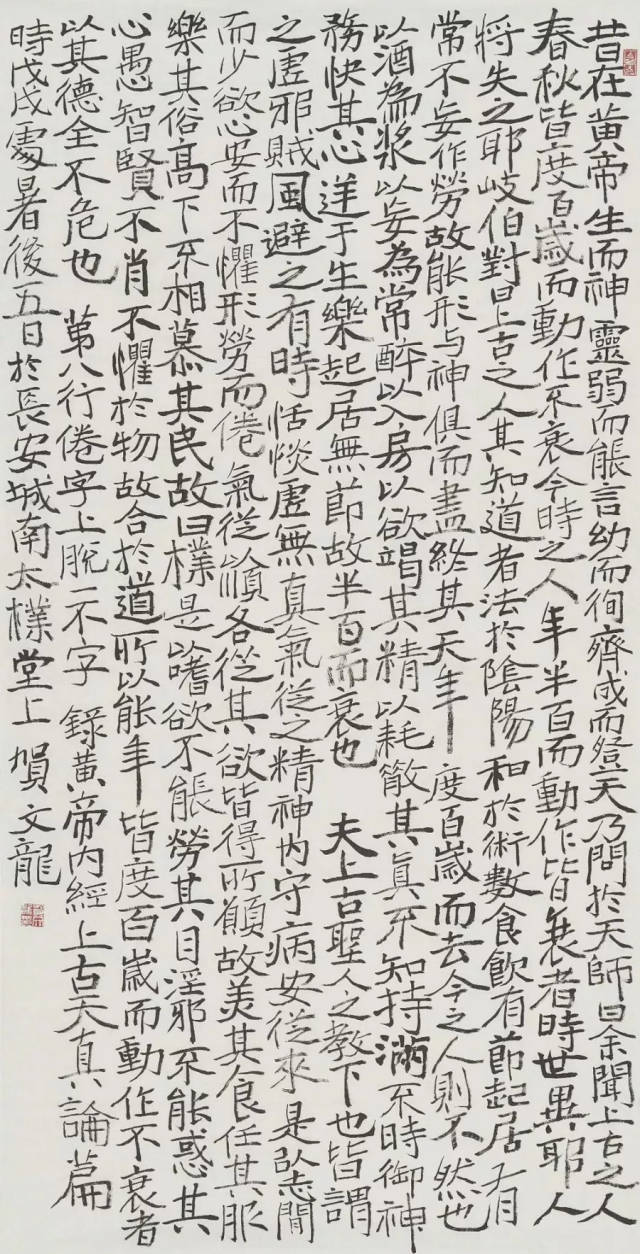 昔在黃帝生而神靈弱而能言幼而徇齊成而登天乃問於天師曰余聞上古之人
春秋皆度百歲而動作不衰今時之人年半百而動作皆衰者時世異耶人
將失之耶岐伯對曰上古之人其知道者法於陰陽和於術數食飲有節起居有
常不妄作勞故能形与神俱而盡終其天年度百歲而去今之人則不然也
以酒為漿以妄為常醉以入房以欲竭其精以耗散其真不知持滿不時御神
務快其心逆于生樂起居無節故半百而衰也 夫上古聖人之教下也皆謂
之虛邪賊風避之有時恬惔虛無真氣從之精神內守病安從來是以志閒
而少欲心安而不懼形勞而倦氣從以順各從其欲皆得所願故美其食任其服
樂其俗高下不相慕其民故曰樸是以嗜欲不能勞其目淫邪不能惑其
心愚智賢不肖不懼於物故合於道所以能年皆度百歲而動作不衰者
以其德全不危也 第八行倦字上脫一不字 錄黃帝內經上古天真論篇
時戊戌處暑後五日於長安城南太樸堂上 賀文龍